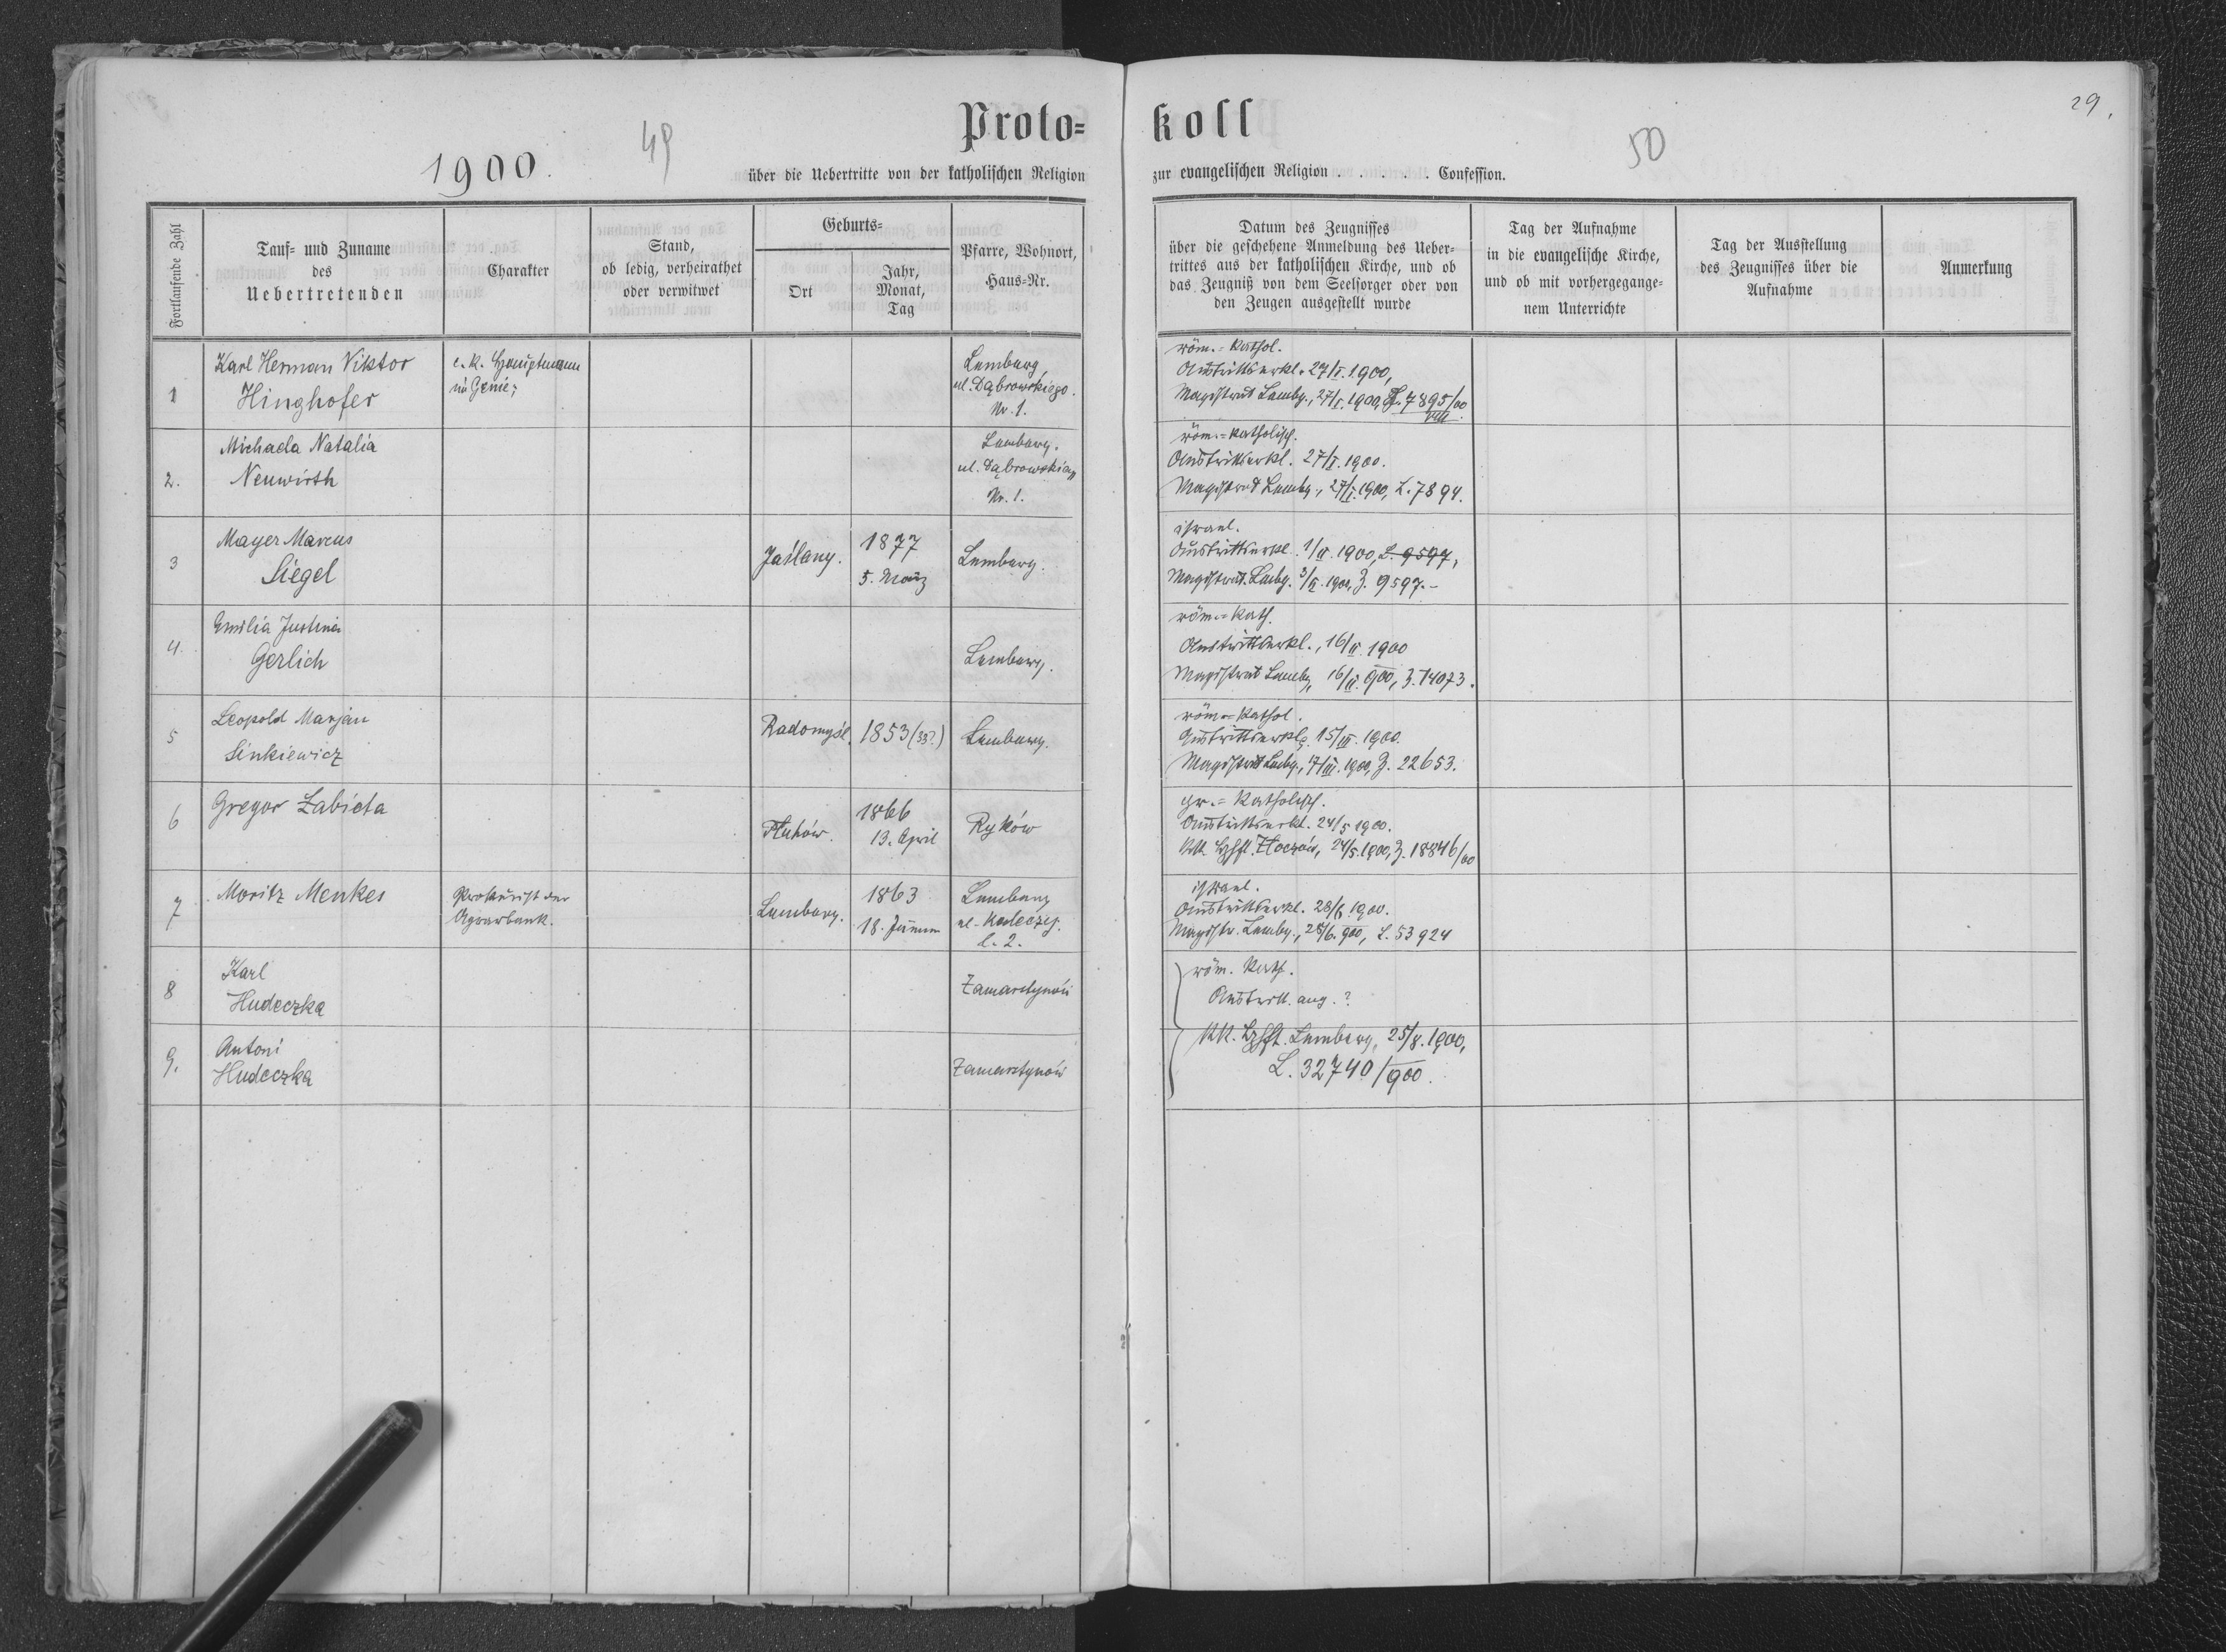 Proto=
koll
29.
49
50
1900.
über die Uebertritte von der katholischen Religion
zur evangelischen Religion . . . . . . Confession.
Fortlaufende Zahl
Tauf= und Zuname
des
Uebertretenden
Charakter
Stand,
ob ledig, verheirathet
oder verwitwet
Geburts=
Ort
Jahr,
Monat,
Tag
Pfarre, Wohnort,
Haus=Nr.
Datum des Zeugnisses
über die geschehene Anmeldung des Ueber=
trittes aus der katholischen Kirche, und ob
das Zeugniß von dem Seelsorger oder von
den Zeugen ausgestellt wurde
Tag der Aufnahme
in die evangelische Kirche,
und ob mit vorhergegange=
nem Unterrichte
Tag der Ausstellung
des Zeugnisses über die
Aufnahme
Anmerkung
1
Karl Herman Viktor
Hinghofer
c. k. Hauptmann
im Genie;
Lemberg,
ul. Dąbrowskiego.
Nr. 1.
röm.=kathol.
Austrittserkl. 27/I. 1900,
Magistrat Lembg., 27/I. 1900, 7895/00
VIII.
2.
Michaela Natalia
Neuwirth
Lemberg.
ul. Dąbrowskieg
Nr. 1.
röm.=katholisch.
Austrittserkl. 27/I. 1900.
Magistrat Lembg., 27/I. 1900, L. 7894.
3
Mayer Marcus
Siegel
Jaślany.
1877
5. März
Lemberg.
israel.
Austrittserkl. 1/II. 1900, L. 9597,
Magistrat. Lmbg. 3/II. 1900, Z. 9597.-
4.
Emilia Justina
Gerlich
Lemberg.
röm.=kath.
Austrittserkl., 16/II. 1900
Magistrat Lembg, 16/II. 900, Z. 14073.
5
Leopold Marjan
Sinkiewicz
Radomyśl.
1853 (33?)
Lemberg.
röm.=kathol.
Austrittserkl. 15/III. 1900.
Magistrat Lmbg., 17/III. 1900, Z. 22653.
6
Gregor Zabieta
Płuhów.
1866
13. April
Ryków
gr.=katholisch.
Austrittserkl. 24/5 1900.
kk. Bzhft. Złoczów, 24/5. 1900, Z. 18846/00
7
Moritz Menkes
Prokurist der
Agrarbank.
Lemberg.
1863
18. Jänner
Lemberg
ul. Kadeczy.
l. 2.
israel.
Austrittserkl. 28/6. 1900.
Magistr. Lembg., 28/6. 900, L. 53924
8
Karl
Hudeczka
Zamarstynów
röm. kath.
Austritt. ang. ?
9.
Antoni
Hudeczka
Zamarstynów
kk. Bzhft. Lemberg, 25/8. 1900,
L. 32740/900.